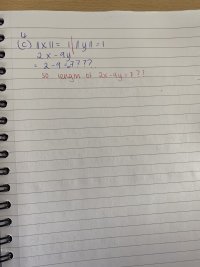 4
(c) ||x|| = 1 ||y|| = 1
2x - 9y
= 2 - 9 = 7???
so length of 2x - 9y = 7??